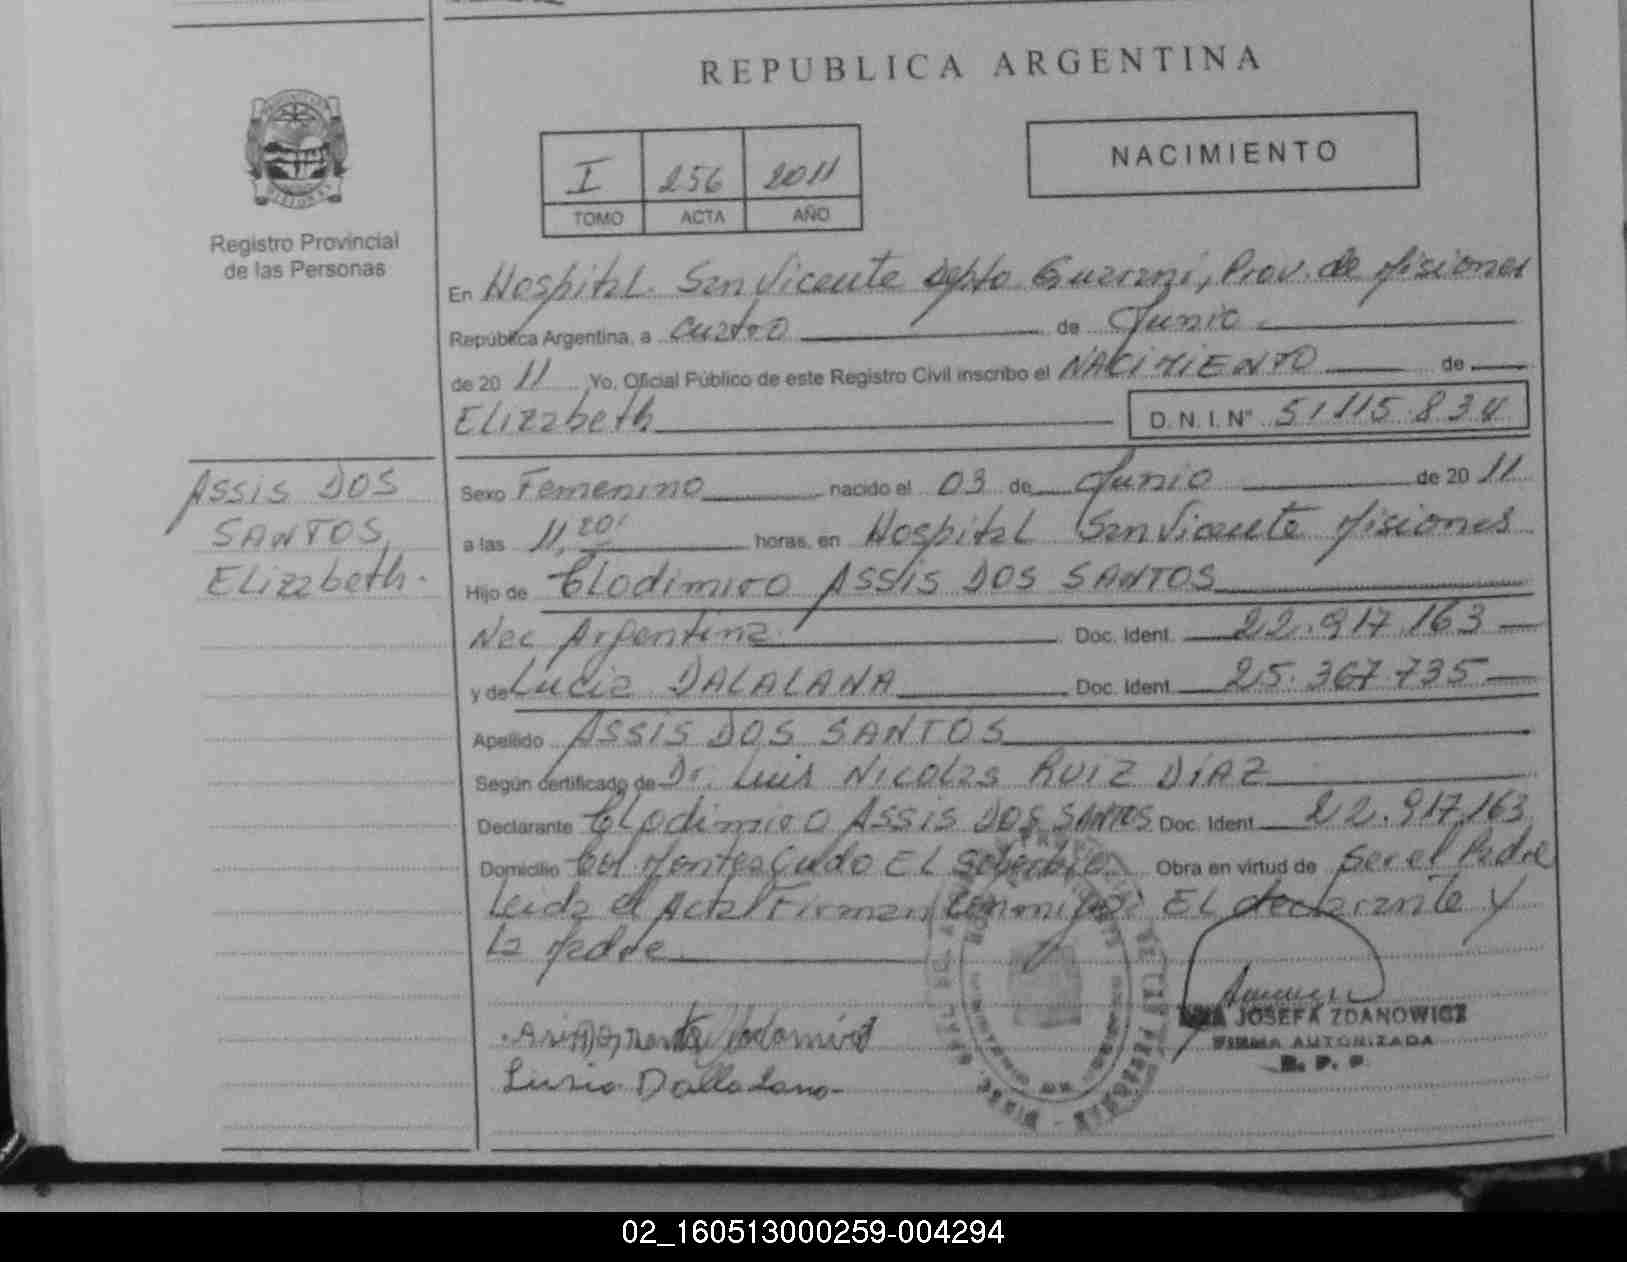 REPUBLICA ARGENTINA
NACIMIENTO
I 256 2011
TOMO ACTA AÑO
Registro Provincial
de las Personas
En Hospital San Vicente depto Guarani, Prov. de Misiones
República Argentina, a cuatro de Junio
de 20 11 Yo, Oficial Público de este Registro Civil inscribo el NACIMIENTO de
Elizabeth D. N. I. N° 51115.834
ASSIS DOS
SANTOS,
Elizabeth.
Sexo Femenino nacido el 03 de Junio de 20 11
a las 11,20' horas, en Hospital San Vicente Misiones
Hijo de Clodimiro ASSIS DOS SANTOS
Nac Argentina Doc. Ident. 22.917.163
y de Lucia DALALANA Doc. Ident. 25.367.735
Apellido ASSIS DOS SANTOS
Según certificado de Dr. Luis Nicolas RUIZ DIAZ
Declarante Clodimiro ASSIS DOS SANTOS Doc. Ident. 22.917.163
Domicilio Col Monteagudo EL Soberbio Obra en virtud de ser el Padre
Leida el Acta Firman conmigo: EL declarante y
la Madre
JOSEFA ZDANOWICZ
FIRMA AUTORIZADA
R. P. P.
02_160513000259-004294